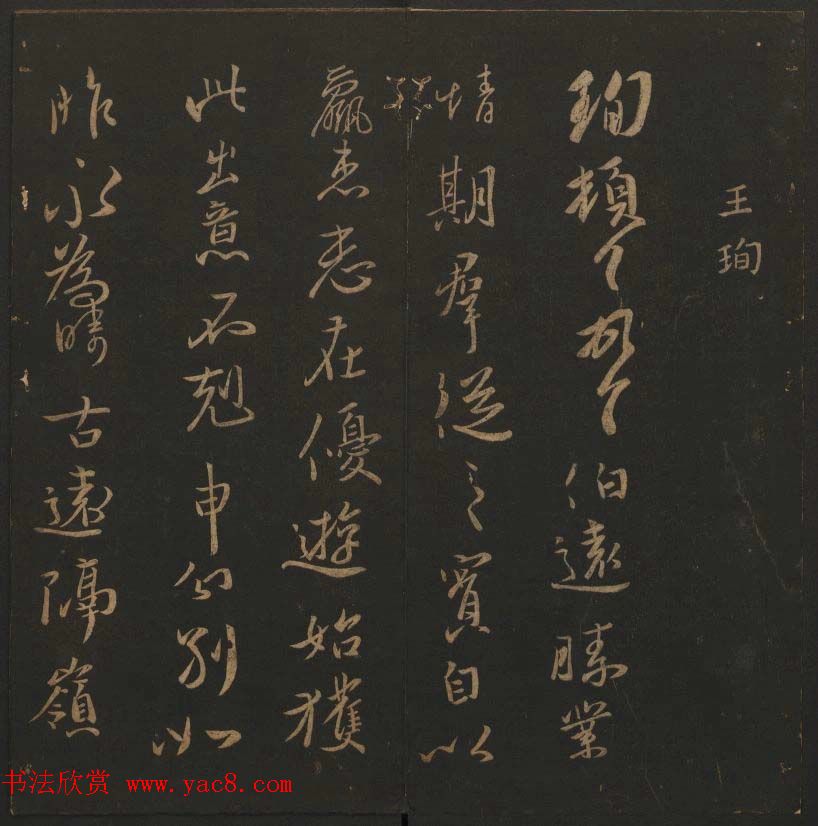 王珣
珣頓首頓首伯遠勝業
情期羣從之寶自以
羸患志在優遊始獲
此出意不剋申分別如
昨永為疇古遠隔嶺
书法欣赏 www.yac8.com